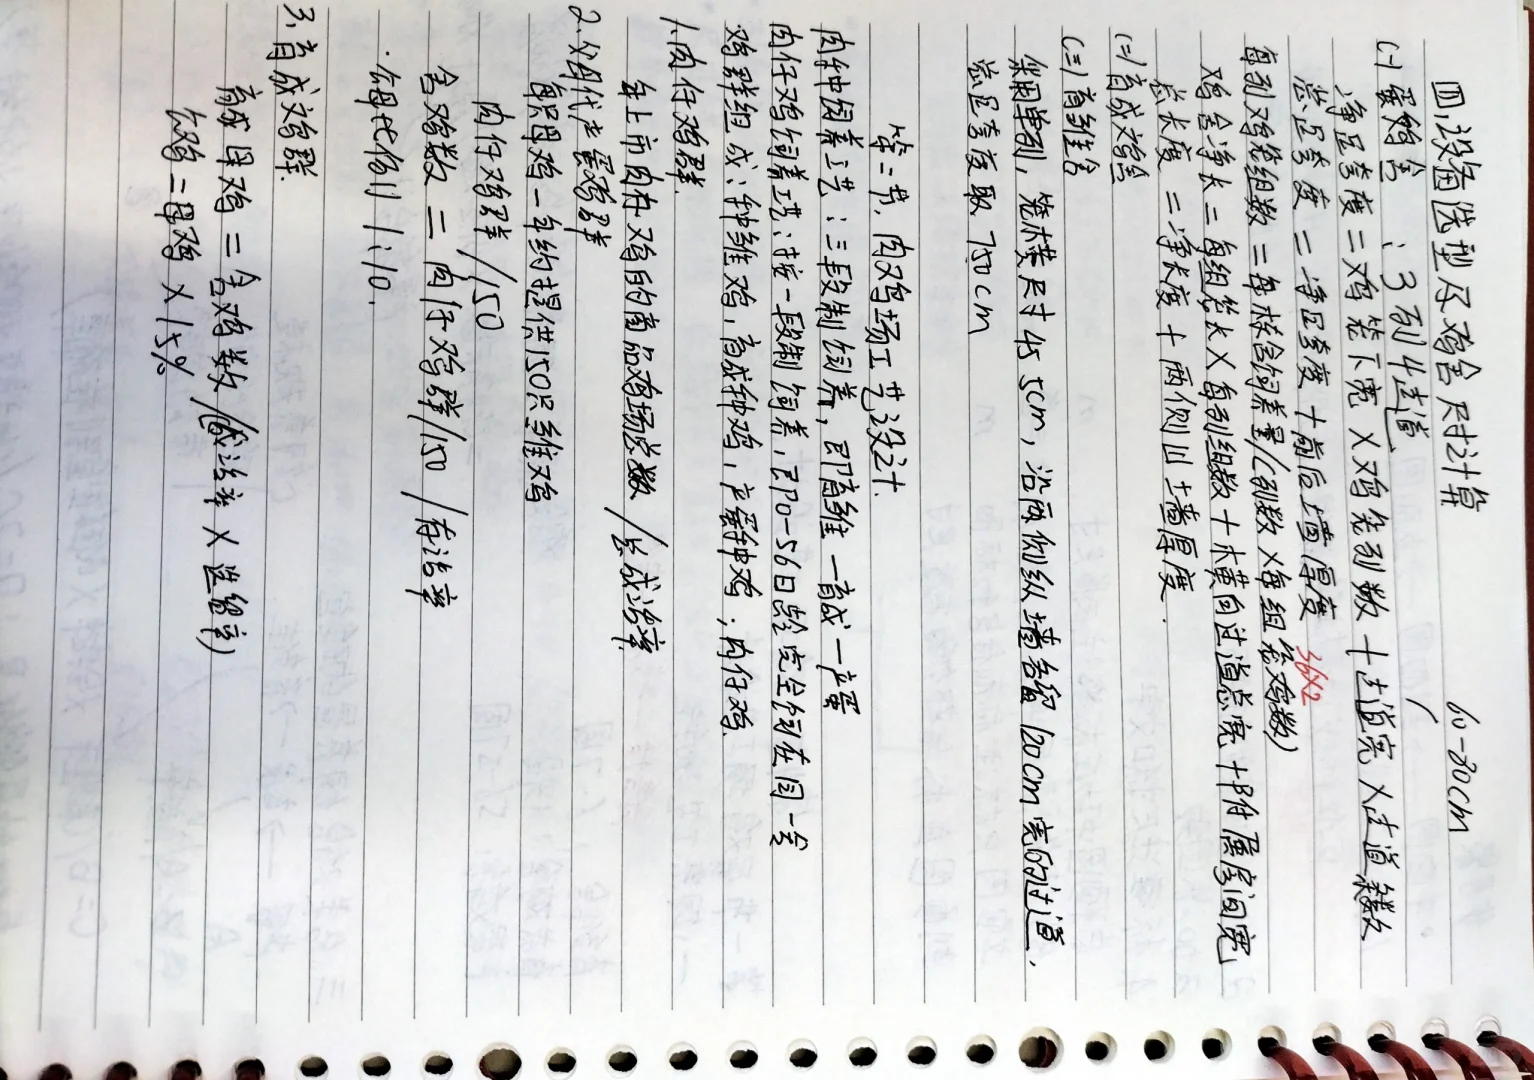 四、设备选型及鸡舍尺寸计算
60-80cm
(一)蛋鸡舍:3列4走道
净区跨度=鸡笼下宽×鸡笼列数+走道宽×过道条数
总区跨度=净区跨度+前后墙厚度
36×2
每列鸡笼组数=每栋舍饲养量/(列数×每组笼鸡数)
鸡舍净长=每组笼长×每列组数+横向过道总宽+附属房间宽
总长度=净长度+两侧山墙厚度.
(二)育成鸡舍
(三)育雏舍
采用单列,笼横尺寸455cm,沿两侧纵墙各留120cm宽的过道,
总区跨度取750cm
第二节.肉鸡场工艺设计.
肉种饲养工艺:三段制饲养,即育雏-育成-产蛋
肉仔鸡饲养工艺:按一段制饲养,即0-56日龄完全饲在同一舍
鸡群组成:种雏鸡,育成种鸡,产蛋种鸡;肉仔鸡.
1.肉仔鸡群.
年上市肉仔鸡的商品鸡场总数/总成活率.
2.父母代产蛋鸡群
每只母鸡一年约提供150只雏鸡
肉仔鸡群/150
舍鸡数=肉仔鸡群/150/存活率
公母比例1:10.
3.育成鸡群.
育成母鸡=舍鸡数/(成活率×选留率)
公鸡=母鸡×15%